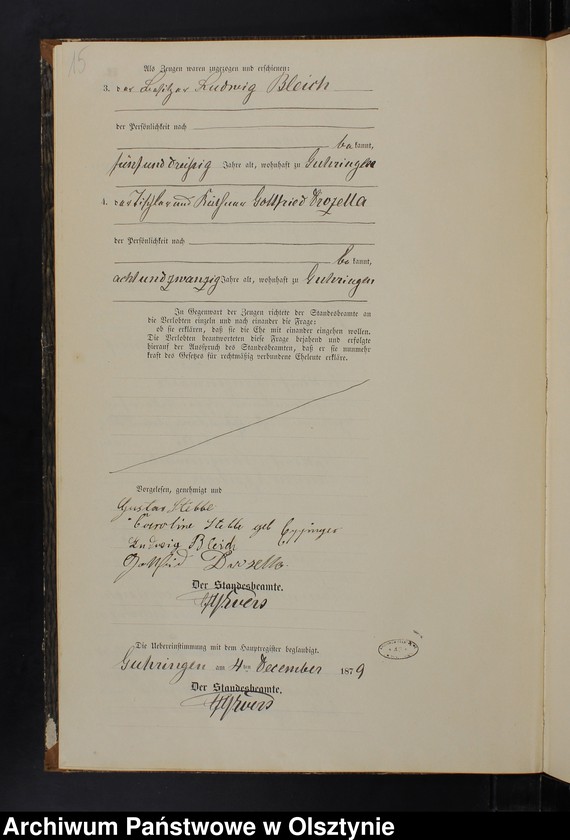 15
Als Zeugen waren zugezogen und erschienen:
3. der Besitzer Ludwig Bleich
der Persönlichkeit nach
be kannt,
fünf und dreißig Jahre alt, wohnhaft zu Guhringen
4. der Tischler und Käthner Gottfried Drozella
der Persönlichkeit nach
be kannt,
acht und zwanzig Jahre alt, wohnhaft zu Guhringen
In Gegenwart der Zeugen richtete der Standesbeamte an
die Verlobten einzeln und nach einander die Frage:
ob sie erklären, daß sie die Ehe mit einander eingehen wollen.
Die Verlobten beantworteten diese Frage bejahend und erfolgte
hierauf der Ausspruch des Standesbeamten, daß er sie nunmehr
kraft des Gesetzes für rechtmäßig verbundene Eheleute erkläre.
Vorgelesen, genehmigt und
Gustav Stebbe
Caroline Stebbe geb
Ludwig Bleich
Gottfried Drosella
Der Standesbeamte.
Die Uebereinstimmung mit dem Hauptregister beglaubigt.
Guhringen am 4ten December 1879
Der Standesbeamte.
Archiwum Państwowe w Olsztynie